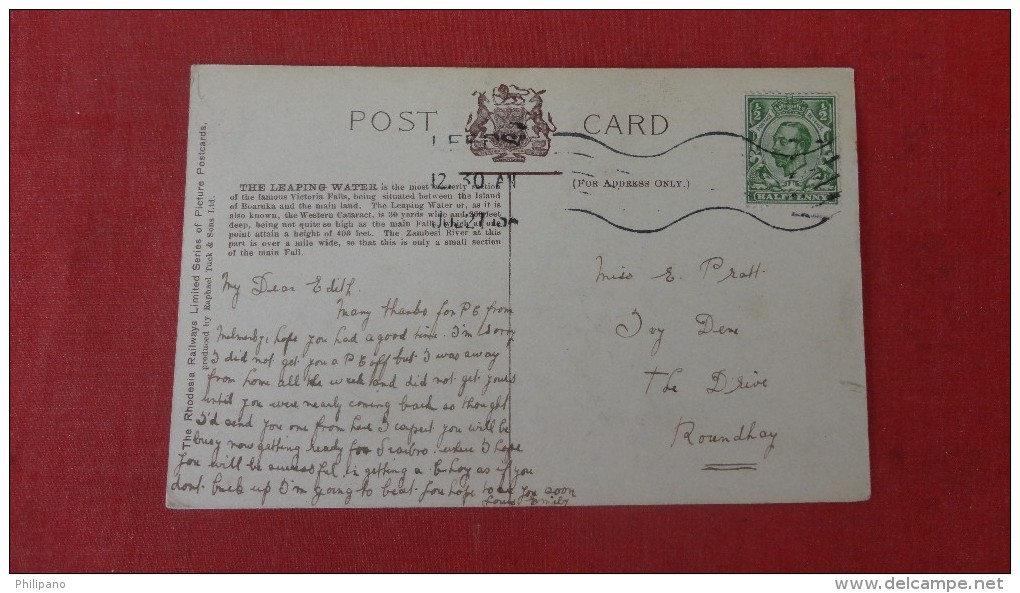 The Rhodesia Railways Limited Series of Picture Postcards,
produced by Raphael Tuck & Sons Ltd.
POST CARD
LEEDS
12.30 AM
(FOR ADDRESS ONLY.)
½ ½
HALFPENNY
THE LEAPING WATER is the most westerly section
of the famous Victoria Falls, being situated between the island
of Boaruka and the main land. The Leaping Water or, as it is
also known, the Western Cataract, is 30 yards wide and feet
deep, being not quite so high as the main Fall, which at one
point attain a height of 400 feet. The Zambesi River at this
part is over a mile wide, so that this is only a small section
of the main Fall.
My Dear Edith.
Many thanks for P C from
hope you had a good time. I'm sorry
I did not get you a P C off but I was away
from home all the week and did not get yours
until you were nearly coming back so thought
I'd send you one from here I expect you will be
busy now getting ready for Scarbro. where I hope
you will be successful in getting a boy as if you
dont buck up I'm going to beat you hope to see you soon
Love Emily
Miss E. Pratt.
Ivy Dene
The Drive
Roundhay
Philipano
www.delcampe.net